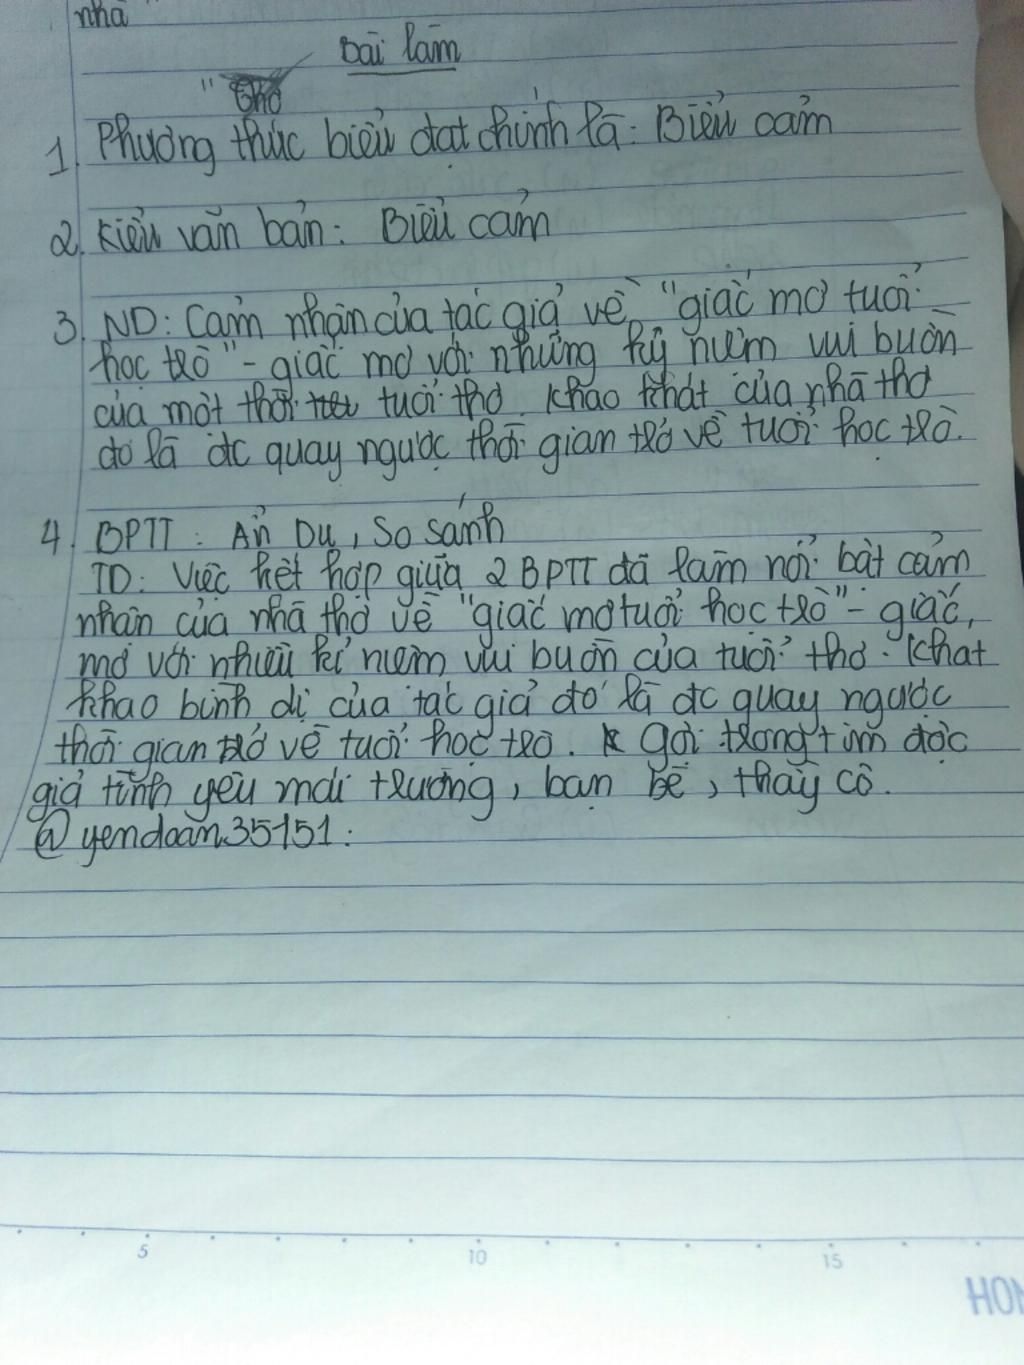 nhà
Bài làm
"
1. Phương thức biểu đạt chính là: Biểu cảm
2. Kiểu văn bản: Biểu cảm
3. ND: Cảm nhận của tác giả về "giấc mơ tuổi
học trò" - giấc mơ với những kỷ niệm vui buồn
của một thời tuổi thơ. Khao khát của nhà thơ
đó là đc quay ngược thời gian trở về tuổi học trò.
4. BPTT: Ẩn Dụ, So sánh
TD: Việc kết hợp giữa 2 BPTT đã làm nổi bật cảm
nhận của nhà thơ về "giấc mơ tuổi học trò" - giấc
mơ với nhiều kỉ niệm vui buồn của tuổi thơ. Khát
khao bình dị của tác giả đó là đc quay ngược
thời gian trở về tuổi học trò. Gợi trong tim độc
giả tình yêu mái trường, bạn bè, thầy cô.
@yendoan35151.
5 10 15
HON